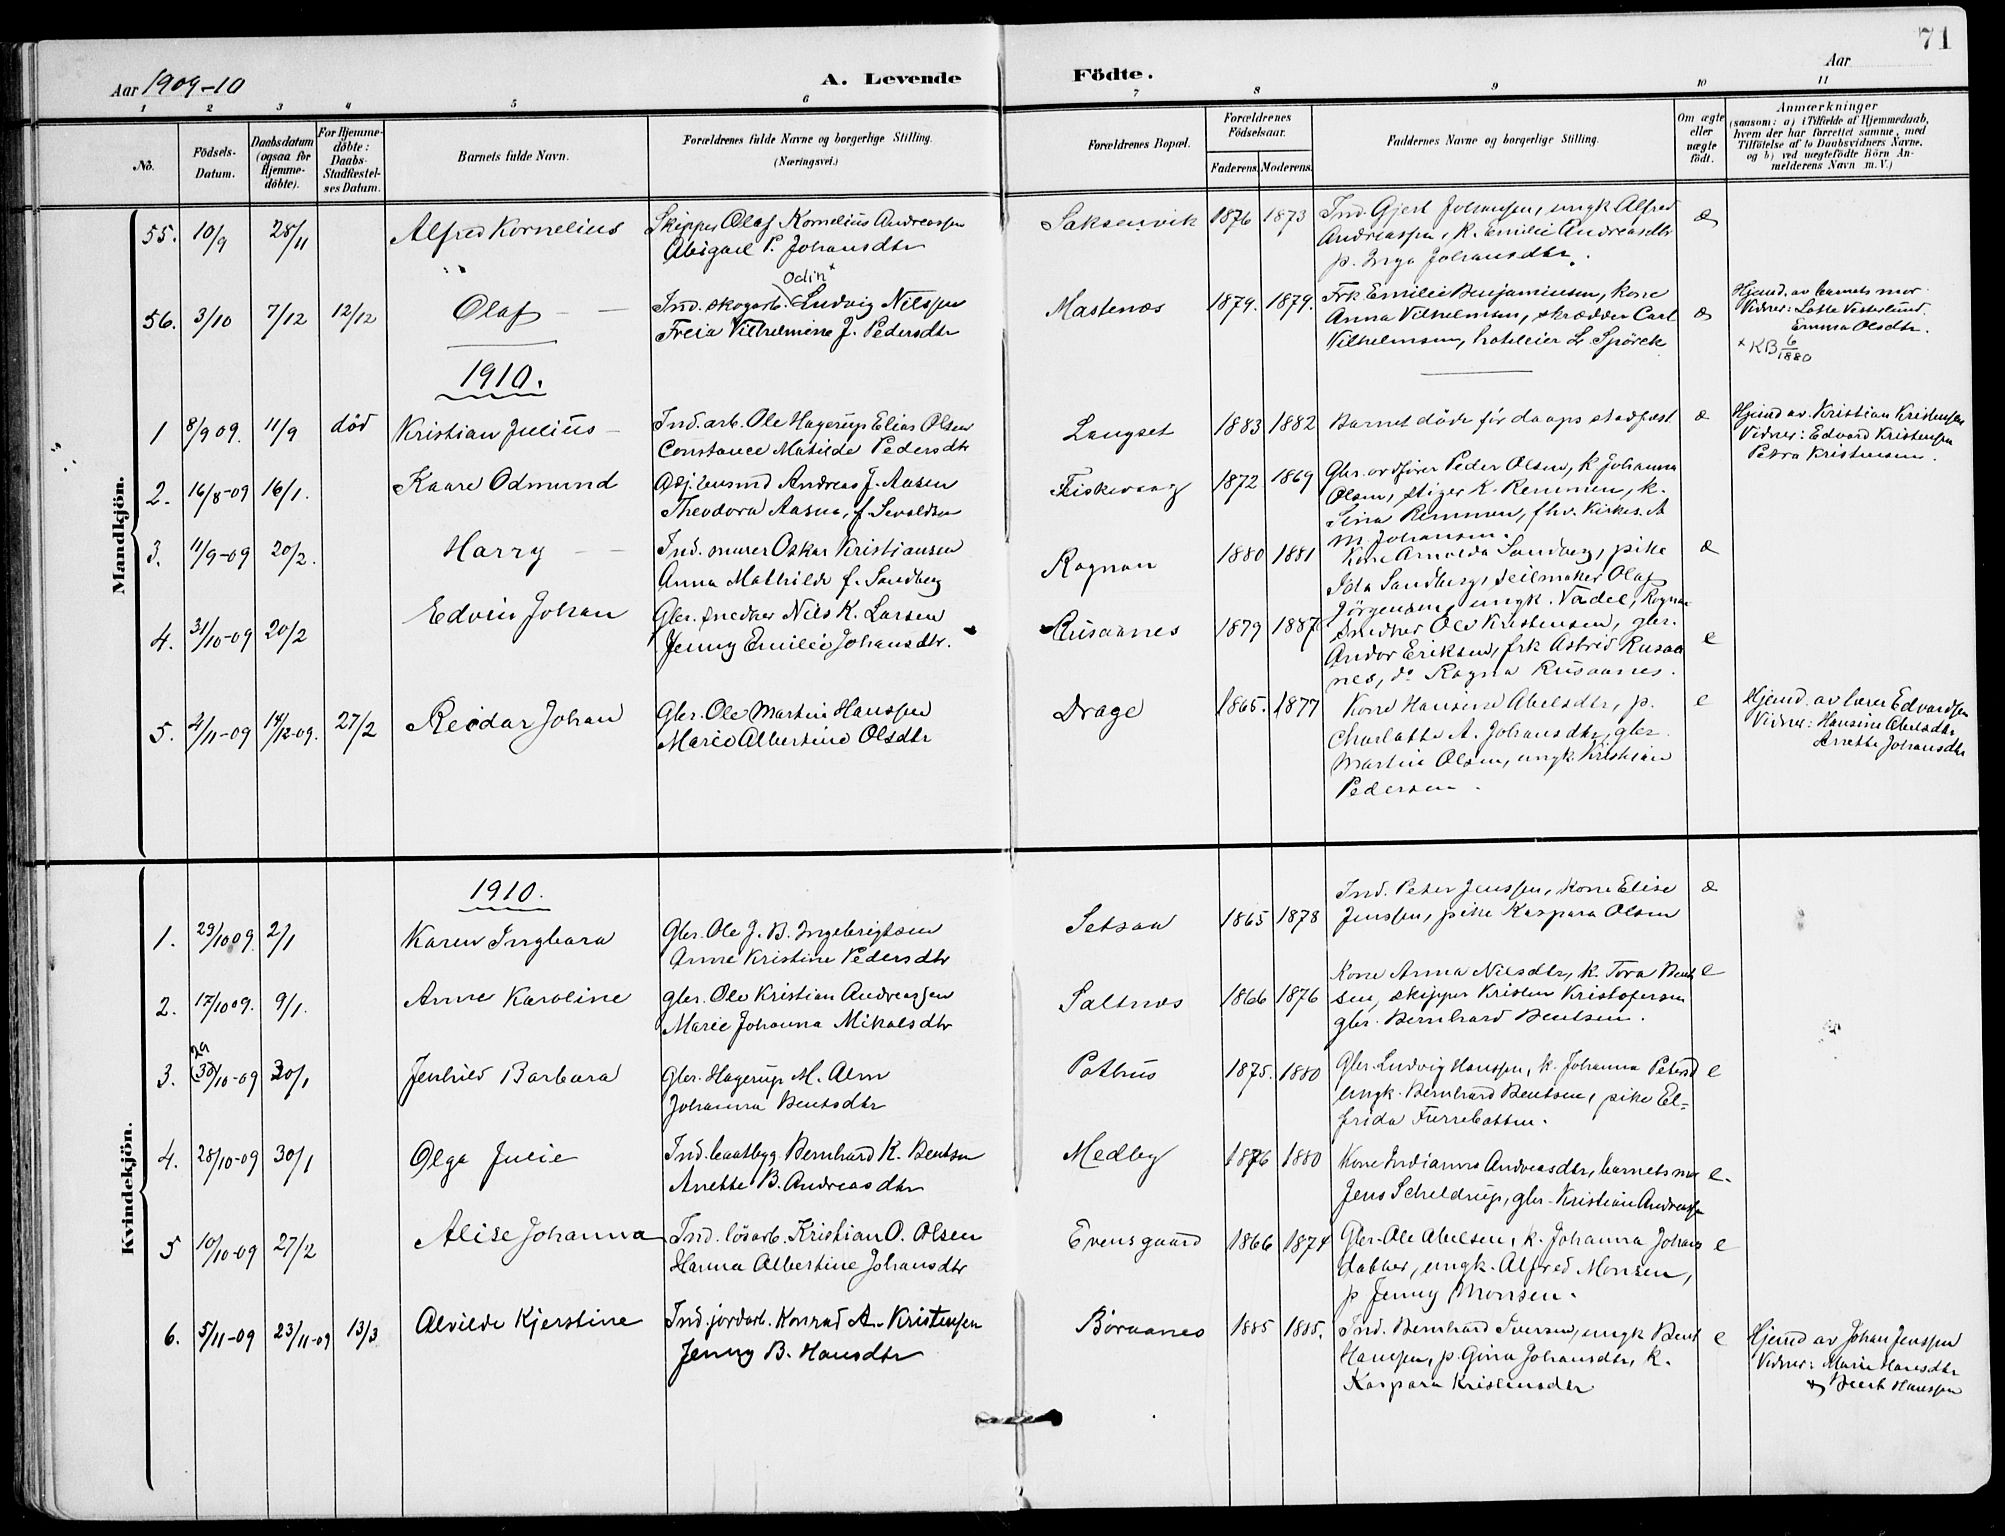 71
Aar 1909-10
A. Levende Födte.
Aar
1 2 3 4 5 6 7 8 9 10 11
No.
Födsels-Datum.
Daabsdatum (ogsaa for Hjemme-döbte).
For Hjemme-döbte: Daabs-Stadfæstel-ses Datum.
Barnets fulde Navn.
Forældrenes fulde Navne og borgerlige Stilling.
(Næringsvei.)
Forældrenes Bopæl.
Forældrenes Födselsaar.
Faderens. Moderens.
Faddernes Navne og borgerlige Stilling.
Om ægte eller uægte födt.
Anmærkninger
(saasom: a) i Tilfælde af Hjemmedaab,
hvem der har forrettet samme, med
Tilföielse af to Daabsvidners Navne.
og b) ved uægtefödte Börn An-
melderens Navn m. V.)
Mandkjön.
55. 10/9 28/11 Alfred Kornelius
Skipper Olaf Kornelius Andreassen
Abigael P. Johansdtr
Saksenvik 1876 1873
Ind. Gjert Johansen, ungk Alfred
Andreassen, k. Emilie Andreasdtr
p. Inga Johansdtr.
æ
56. 3/10 7/12 12/12 Olaf
Odin x
Ind. skogarb. Ludvig Nilssen
Freia Vilhelmene J. Pedersdtr
Mastenæs 1879. 1879.
Frk Emilie Benjaminsen, kone
Anna Vilhelmsen, skrædder Carl
Vilhelmsen, hoteleier L. Spörck
æ
Hjemd. av barnets mor
Vidner: Lotte Vesterlund
Emma Olsdtr.
x KB 6/1880
1910.
1 8/9 09. 11/9 död Kristian Julius
Ind. arb. Ole Hagerup Elias Olsen
Constance Matilde Pedersdtr
Langset 1883 1882
Barnet döde för daaps stadfæst.
æ
Hjemd av. Kristian Kristensen
Vidner: Edvard Kristensen
Petra Kristensen.
2. 16/8-09 16/1. Kaare Odmund
Andreas J. Aasen
Theodora Aasen, f. Sevaldsen
Fiskevaag 1872 1869
Gbr. ordfører Peder Olsen, k. Johanna
Olsen, stiger K. Remmen, k.
Sina Remmen, fhv. kirkes. A
M. Johansen.
3. 11/9-09 20/2. Harry
Ind. murer Oskar Kristiansen
Anna Mathilde f. Sandberg
Rognan 1880 1881
Kone Arnolda Sandberg, pike
Ida Sandberg, seilmaker Olaf
Jörgensen, ungk. Vadel, Rognan
æ
4. 31/10-09 20/2 Edvin Johan
Gbr. snedker Nils K. Larsen
Jenny Emilie Johansdtr.
Rusaanes 1879 1887
Snedker Ole Kristensen, gbr.
Andor Eriksen, frk Astrid Rusaa
nes, do Ragna Rusaanes.
e
5. 4/11-09 14/12-09. 27/2 Reidar Johan
Gbr. Ole Martin Hanssen
Marie Albertine Olsdtr
Drage 1865. 1877
Kone Hansine Abelsdtr, p.
Charlotte A. Johansdtr, gbr.
Martin Olsen, ungk Kristian
Pedersen.
e
Hjemd. av lærer Edvardsen
Vidner: Hansine Abelsdtr
Anette Johansdtr
Kvindekjön.
1910.
1. 29/10 09. 2/1 Karen Ingbara
Gbr. Ole J. B. Ingebrigtsen
Anne Kristine Pedersdtr
Setsaa 1865 1878
Ind. Peter Jenssen, Kone Elise
Jenssen, pike Kaspara Olsen
æ
2. 17/10 09. 9/1. Anne Karoline
gbr. Ole Kristian Andreassen
Marie Johanna Mikalsdtr
Saltnes 1866 1876
Kone Anna Nilsdtr, k. Tora Bent
sen, skipper Kristen Kristofersen
gbr. Bernhard Bentsen.
e
3. 29 (30/10-09 30/1 Jenhild Barbara
gbr. Hagerup M. Alm
Johanna Bentsdtr
Pothus 1875. 1880
Gbr. Ludvig Hanssen, k. Johanna Petersd
ungk. Bernhard Bentsen, pike El=
frida Furrebotten.
e
4. 28/10-09 30/1 Olga Julie
Ind. baatbyg. Bernhard K. Bentsen
Anette B. Andreasdtr
Medby 1876 1880
Kone Indianna Andreasdtr, barnets mor
Jens Scheldrup, gbr. Kristian Andreassen
e.
5 10/10-09 27/2 Alise Johanna
Ind. lösarb. Kristian O. Olsen
Hanna Albertine Johansdtr
Evensgaard 1866 1874
Gbr. Ole Abelsen, k. Johanna Johans
datter, ungk. Alfred Monsen,
p Jenny Monsen.
e
6. 5/11-09 23/11-09 13/3 Alvilde Kjerstine
Ind. jordarb. Konrad A. Kristensen
Jenny B. Hansdtr
Börvanes 1885 1885.
Ind. Bernhard Iversen, ungk Bent
Hanssen, p. Gina Johansdtr, k.
Kaspara Kristensdtr
e
Hjemd av Johan Jenssen
Vidner: Marie Hansdtr
& Bent Hanssen